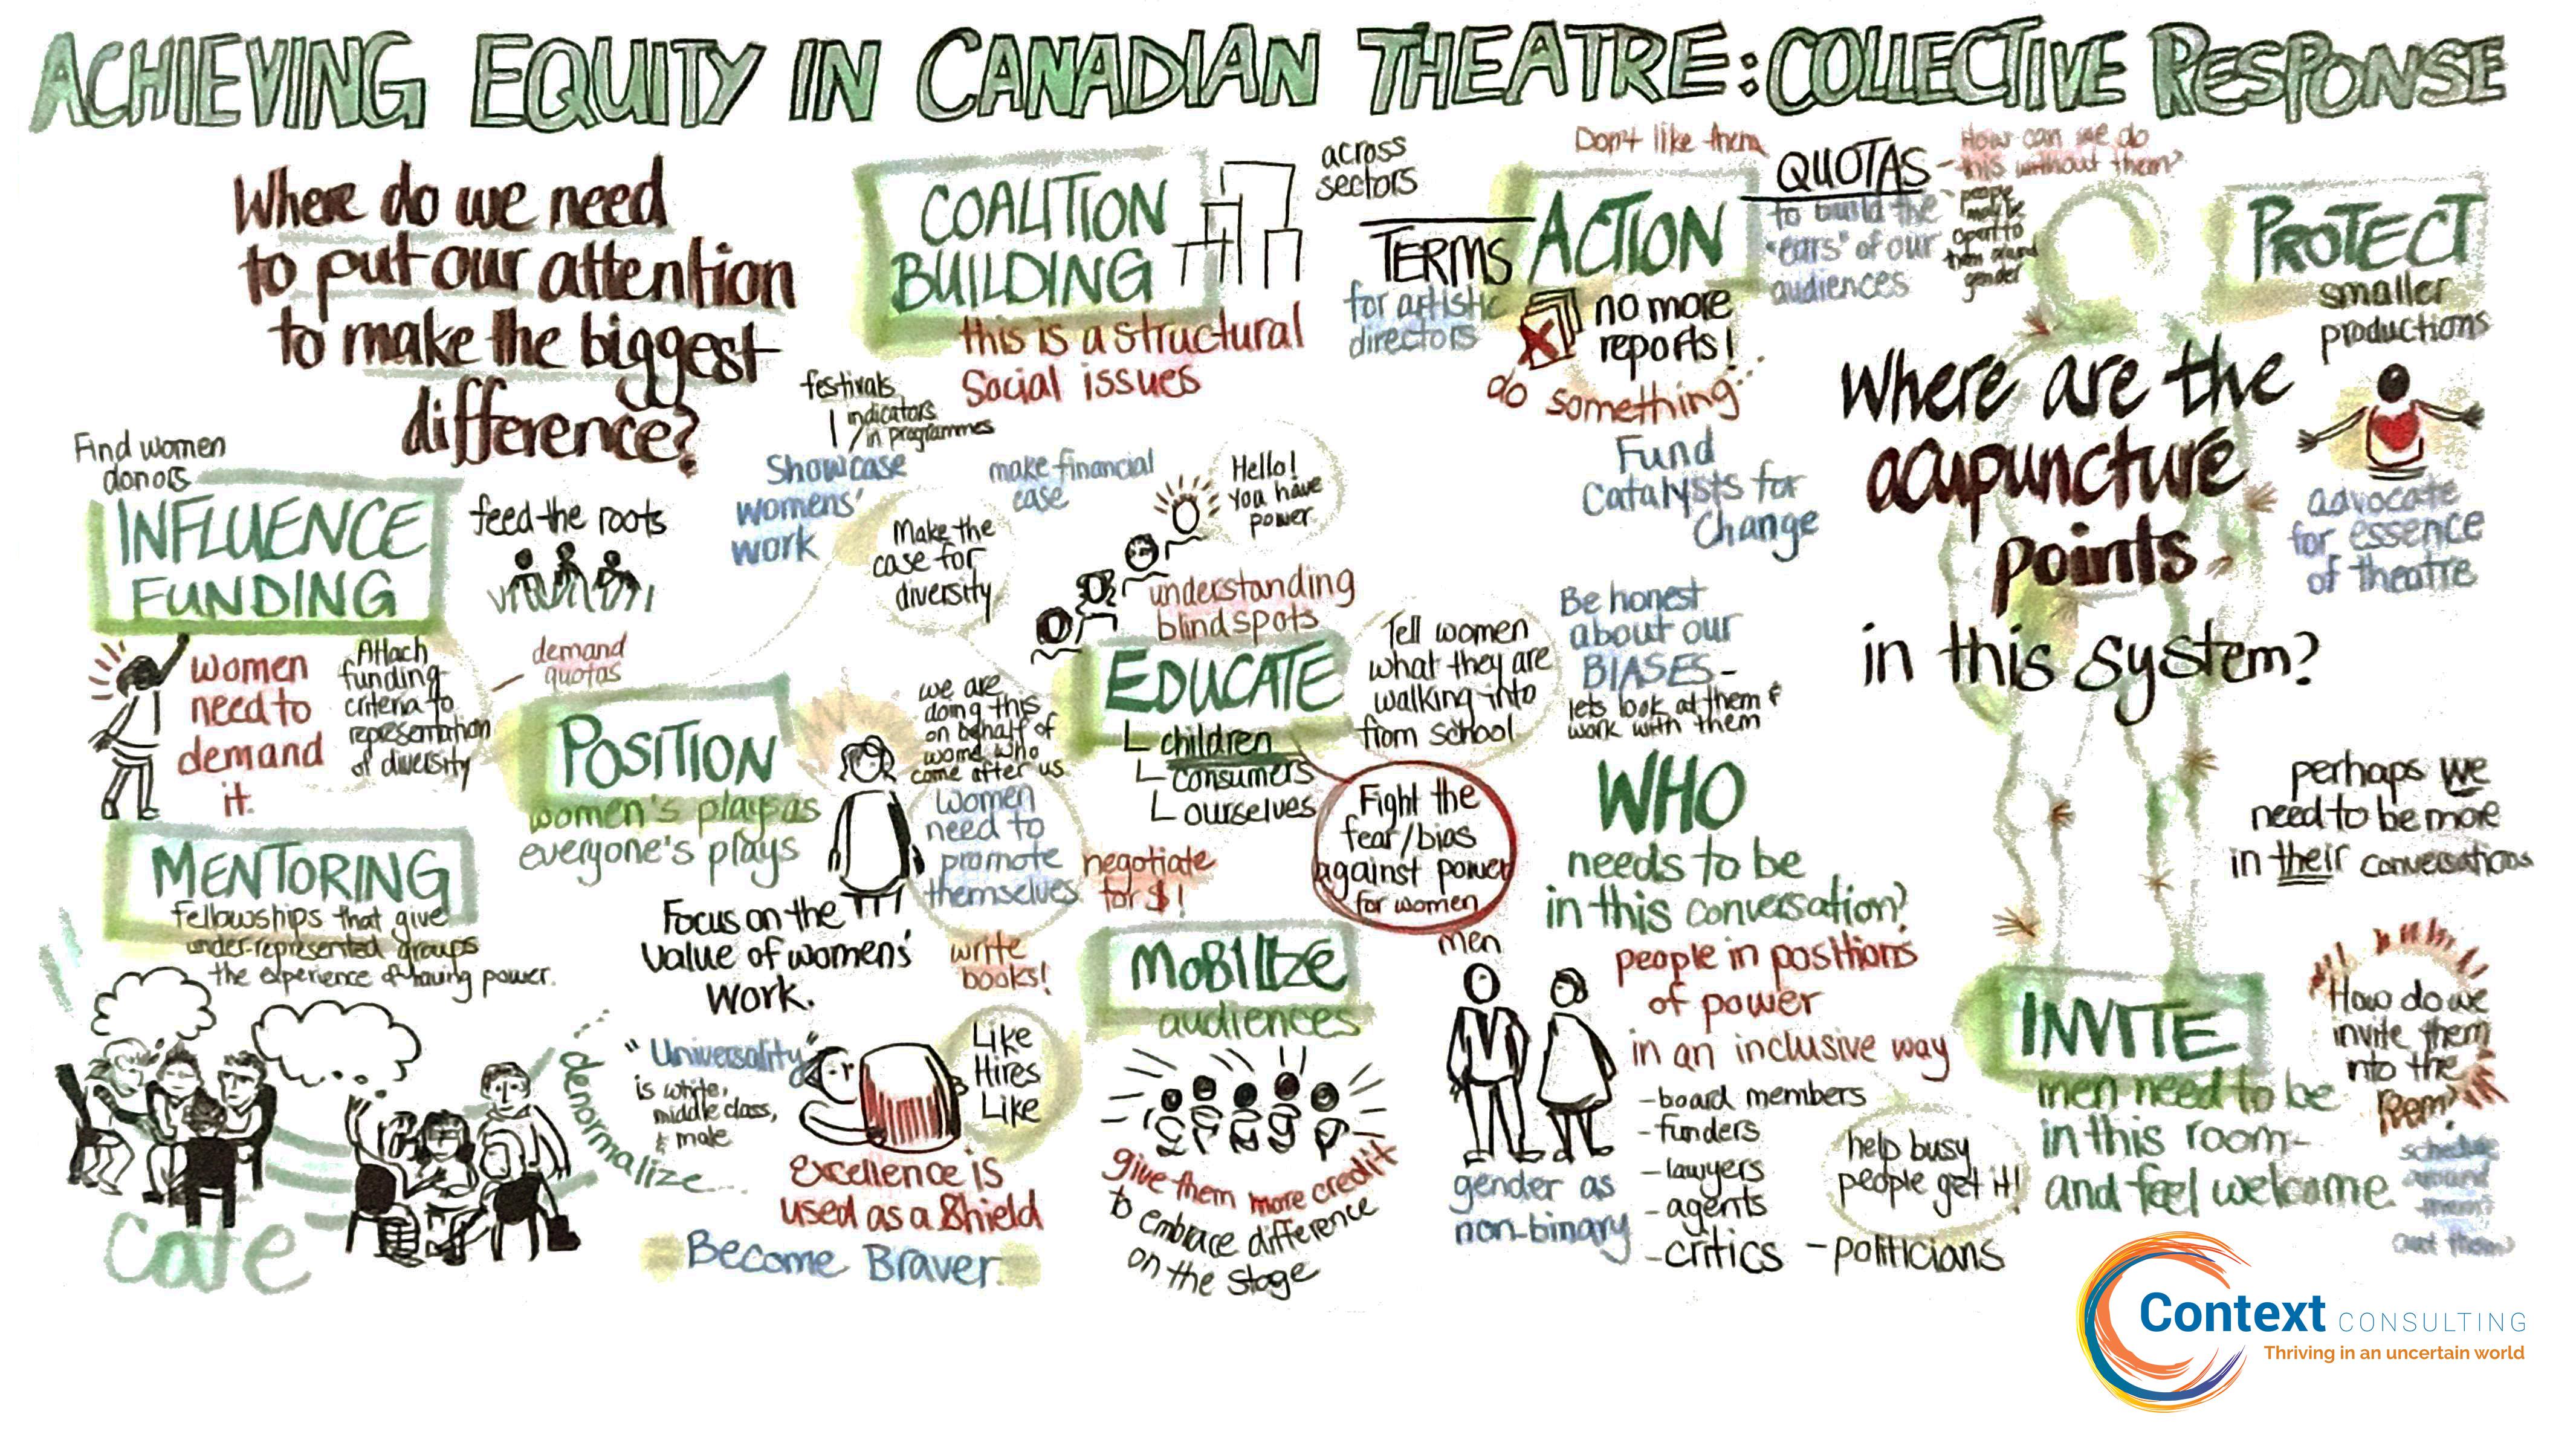 ACHIEVING EQUITY IN CANADIAN THEATRE: COLLECTIVE RESPONSE
Where do we need
to put our attention
to make the biggest
difference?
Find women
donors
INFLUENCE
FUNDING
feed the roots
women
need to
demand
it.
Attach
funding
criteria to
representation
of diversity
demand
quotas
MENTORING
fellowships that give
under-represented groups
the experience of having power.
Cafe
denormalize...
COALITION
BUILDING
across
sectors
this is a structural
Social issues
festivals
indicators
in programmes
Showcase
womens'
work
make financial
case
Make the
case for
diversity
Hello!
You have
power
understanding
blind spots
POSITION
women's plays as
everyone's plays
we are
doing this
on behalf of
who
come after us
Women
need to
promote
themselves
negotiate
for $!
write
books!
Focus on the
value of womens'
work.
"Universality"
is white,
middle class,
& male
Like
Hires
Like
Excellence is
used as a Shield
Become Braver
EDUCATE
children
consumers
ourselves
Tell women
what they are
walking into
from school
Fight the
fear/bias
against power
for women
MOBILIZE
audiences
give them more credit
to embrace difference
on the stage
TERMS
for artistic
directors
ACTION
no more
reports!
do something...
Don't like them
QUOTAS
How can we do
this without them?
to build the
"ears" of our
audiences
people
may be
open to
them around
gender
Fund
Catalysts for
Change
Be honest
about our
BIASES-
lets look at them &
work with them
WHO
needs to be
in this conversation?
people in positions
of power
in an inclusive way
-board members
-funders
-lawyers
-agents
-critics -politicians
men
gender as
non-binary
help busy
people get it!
PROTECT
smaller
productions
advocate
for essence
of theatre
Where are the
acupuncture
points
in this system?
perhaps we
need to be more
in their conversations
INVITE
men need to be
in this room-
and feel welcome
How do we
invite them
into the
Room?
schedule
around
them
Context CONSULTING
Thriving in an uncertain world